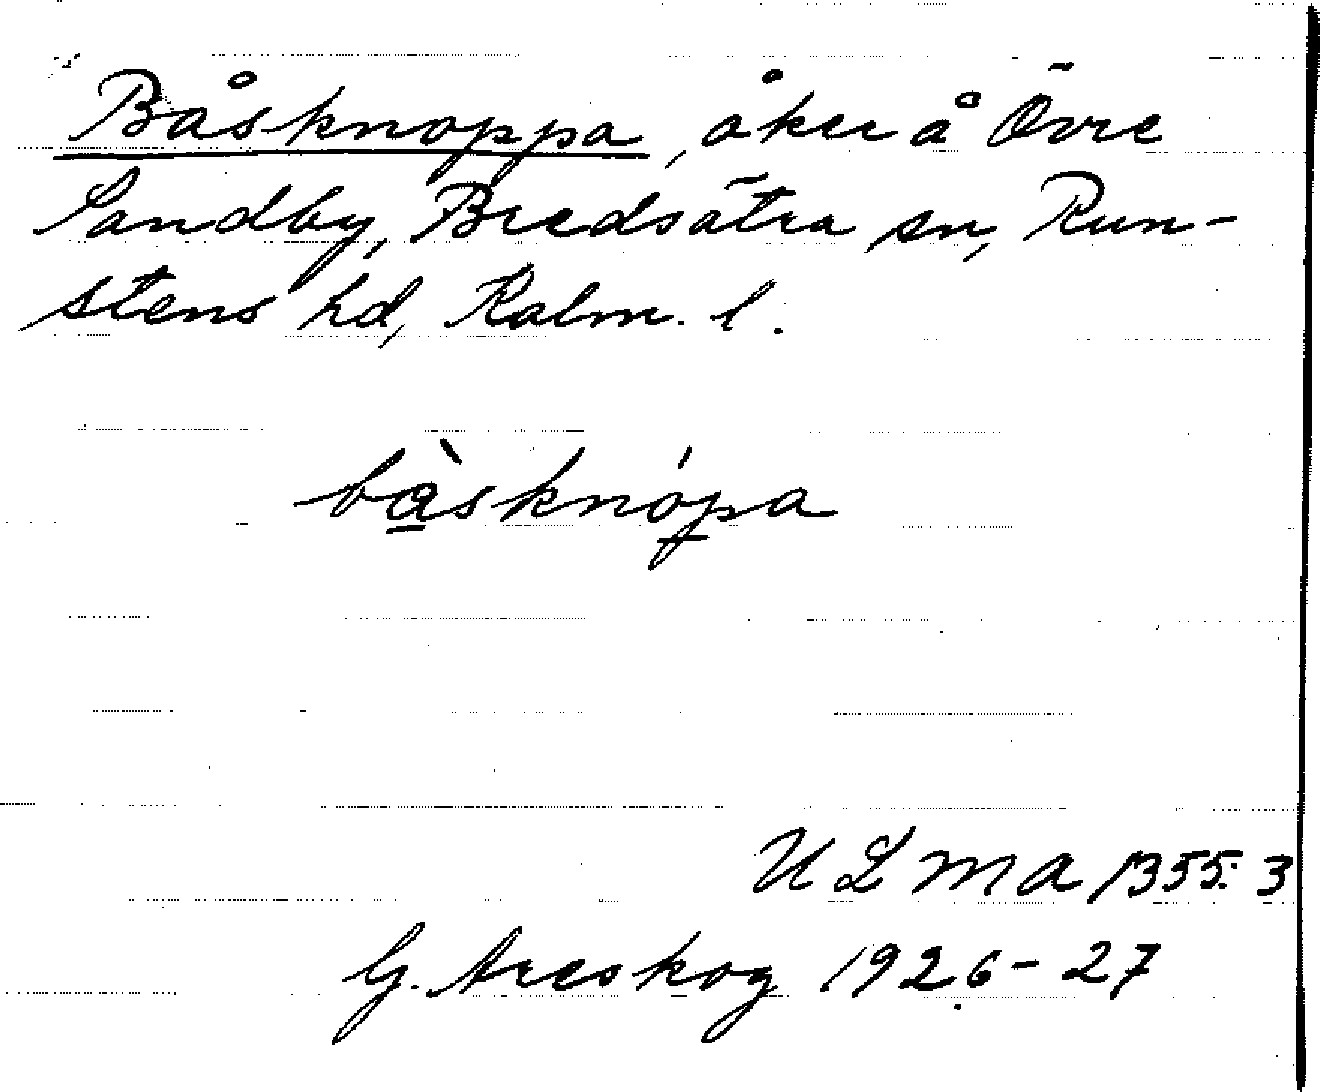 Båsknoppa, åker å Övre
Sandby, Bredsätra sn, Run-
stens hd, Kalm. l.
bàsknópa
ULMA 1355:3
G. Areskog 1926-27